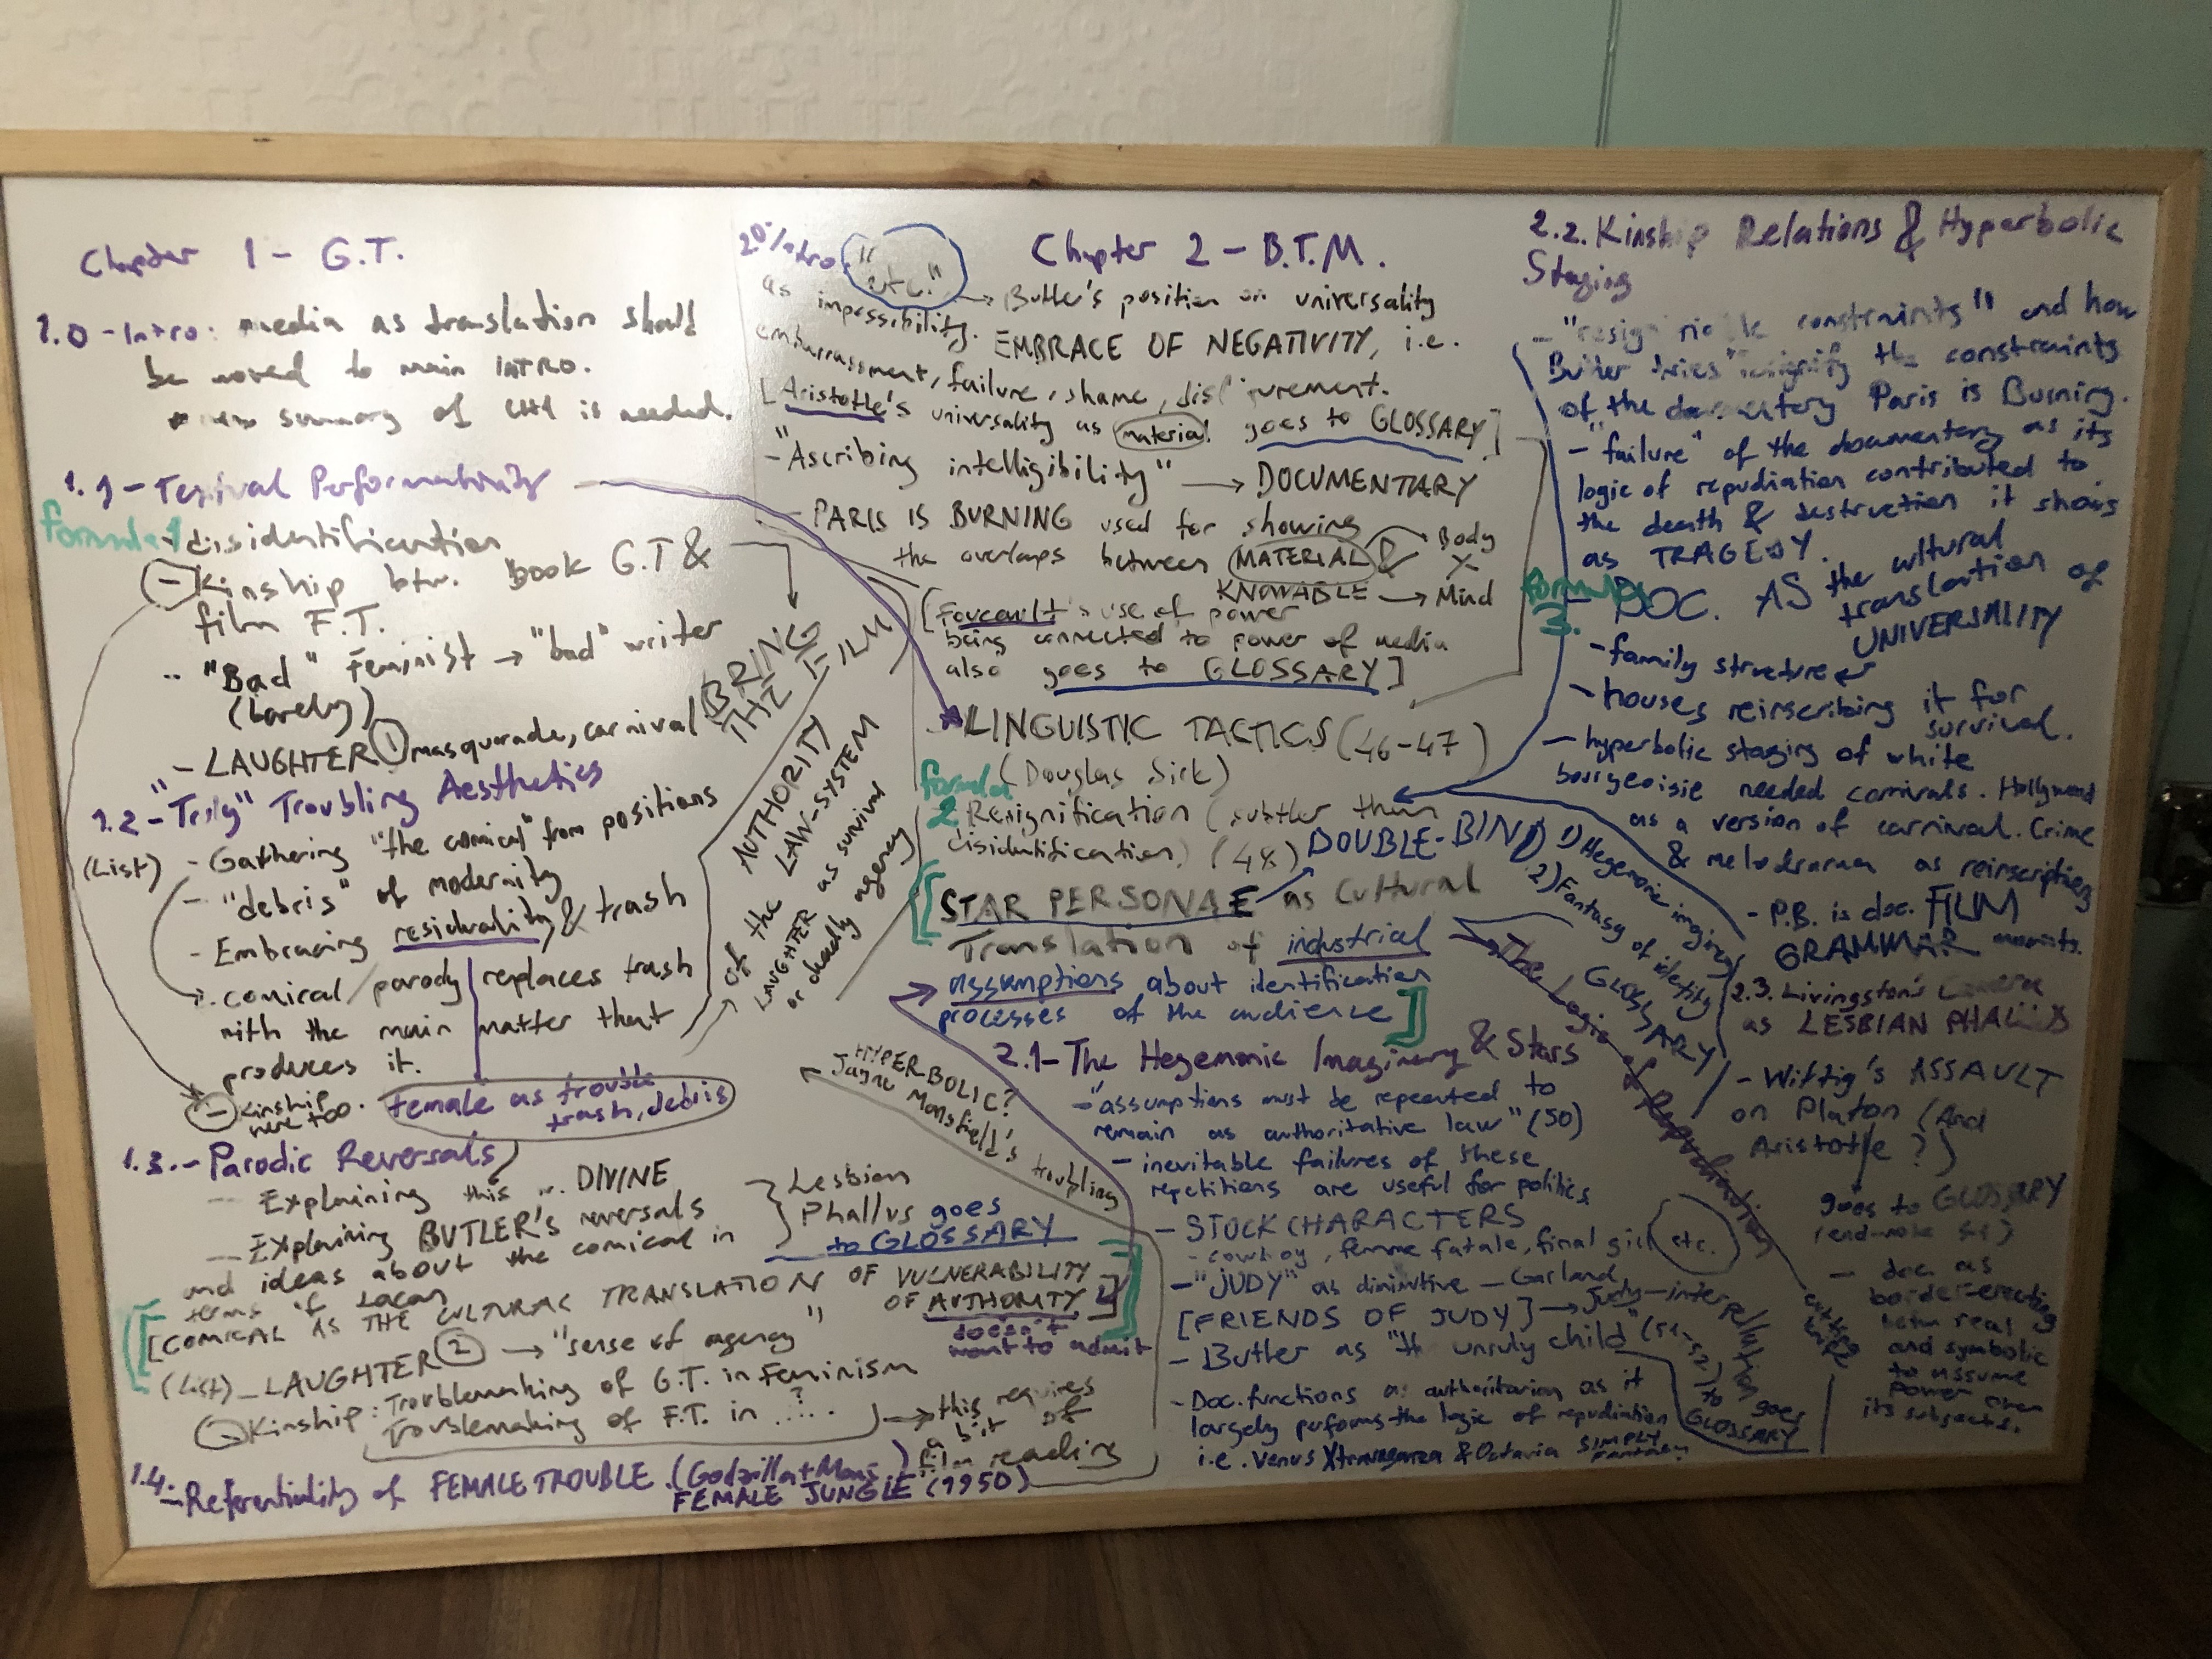 Chapter 1 - G.T.
1.0 - Intro: media as translation should
be moved to main INTRO.
new summary of CH1 is needed.
1.1 - Textual Performativity
formula 1
- disidentification
- Kinship btw. Book G.T &
film F.T.
- "Bad" Feminist → "bad" writer
(barely)
- LAUGHTER 1 masquerade, carnival
BRING
THE FILM
1.2 - "Truly" Troubling Aesthetics
(List) - Gathering "the comical" from positions
- "debris" of modernity
- Embracing residuality & trash
- comical / parody replaces trash
with the main matter that
produces it.
- Kinship
here too.
Female as trouble
trash, debris
AUTHORITY
of the LAW-SYSTEM
LAUGHTER as survival
or deadly agency
1.3. - Parodic Reversals
- Explaining this DIVINE
- Explaining BUTLER's reversals
and ideas about the comical in
terms of Lacan
Lesbian
Phallus goes
to GLOSSARY
[COMICAL AS THE CULTURAL TRANSLATION OF VULNERABILITY
OF AUTHORITY]
doesn't
want to admit
(List) - LAUGHTER 2 → "sense of agency"
- Kinship: Troublemaking of G.T. in Feminism
Troublemaking of F.T. in ..?..
→ this requires
a bit of
film reading
1.4. - Referentiality of FEMALE TROUBLE. (Godzilla +
FEMALE JUNGLE (1950)
HYPERBOLIC?
Jayne Mansfield's troubling
Chapter 2 - B.T.M.
2.0 Intro. "etc."
as impossibility. → Butler's position on universality
EMBRACE OF NEGATIVITY, i.e.
embarrassment, failure, shame, disfigurement.
[Aristotle's universality as material goes to GLOSSARY]
- "Ascribing intelligibility" → DOCUMENTARY
- PARIS IS BURNING used for showing
the overlaps between MATERIAL &
KNOWABLE → Mind
Body
X
[Foucault's use of power
being connected to power of media
also goes to GLOSSARY]
LINGUISTIC TACTICS (46-47)
(Douglas Sirk)
formula
2 Resignification (subtler than
disidentification) (48)
DOUBLE-BIND 1) Hegemonic imaginary
2) Fantasy of identity
GLOSSARY
[STAR PERSONAE as Cultural
Translation of industrial
assumptions about identification
processes of the audience]
The Logic of Repudiation
2.1 - The Hegemonic Imaginary & Stars
- "assumptions must be repeated to
remain as authoritative law" (50)
- inevitable failures of these
repetitions are useful for politics
- STOCK CHARACTERS
- cowboy, femme fatale, final girl etc.
- "JUDY" as diminutive - Garland
[FRIENDS OF JUDY] → Judy - interpellation goes
to GLOSSARY
- Butler as "the unruly child" (51-52)
- Doc. functions as authoritarian as it
largely performs the logic of repudiation
i.e. Venus Xtravaganza & Octavia SIMPLY
fantasy
2.2. Kinship Relations & Hyperbolic
Staging
constraints" and how
Butler tries resignify the constraints
of the documentary Paris is Burning.
- "failure" of the documentary as its
logic of repudiation contributed to
the death & destruction it shows
as TRAGEDY.
formula
3.
- DOC. AS the cultural
translation of
UNIVERSALITY
- family structure
- houses reinscribing it for
survival.
- hyperbolic staging of white
bourgeoisie needed carnivals. Hollywood
as a version of carnival. Crime
& melodrama as reinscription
- P.B. is doc. FILM
GRAMMAR
2.3. Livingston's Camera
as LESBIAN PHALLUS
- Wittig's ASSAULT
on Platon (And
Aristotle?)
goes to GLOSSARY
- doc. as
border-erecting
betw real
and symbolic
to assume
power over
its subjects.